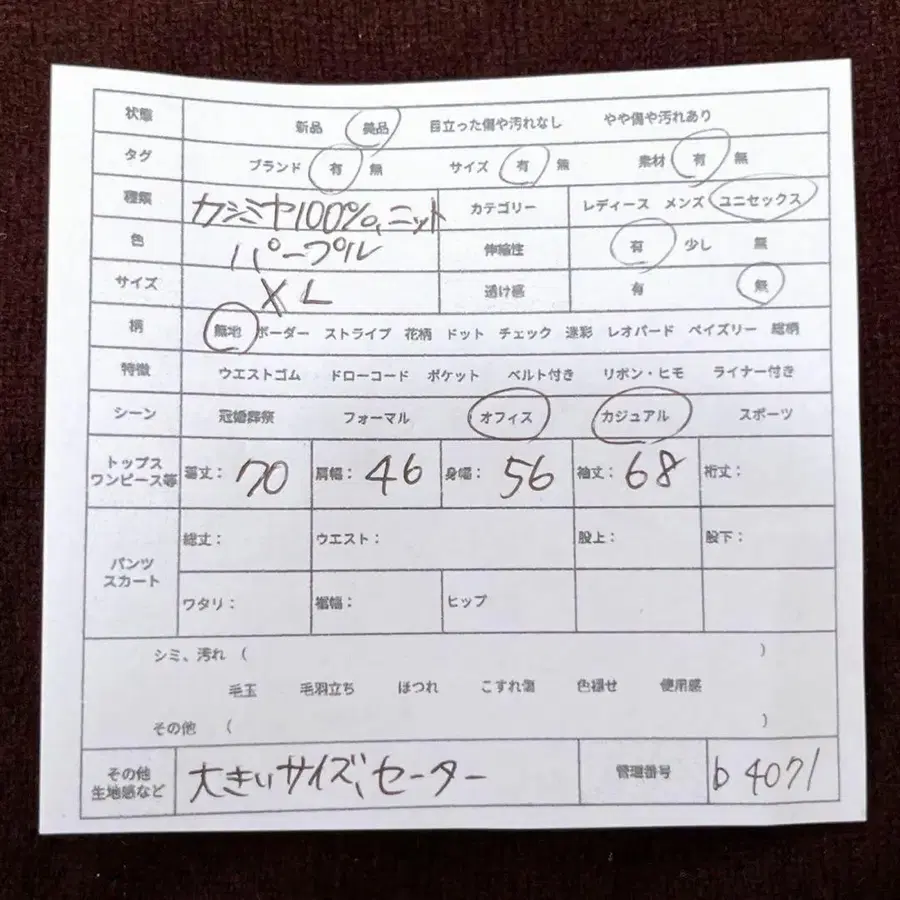 状態 新品 美品 目立った傷や汚れなし やや傷や汚れあり
タグ ブランド 有 無 サイズ 有 無 素材 有 無
種類 カシミヤ100%、ニット カテゴリー レディース メンズ ユニセックス
色 パープル 伸縮性 有 少し 無
サイズ XL 透け感 有 無
柄 無地 ボーダー ストライプ 花柄 ドット チェック 迷彩 レオパード ペイズリー 総柄
特徴 ウエストゴム ドローコード ポケット ベルト付き リボン・ヒモ ライナー付き
シーン 冠婚葬祭 フォーマル オフィス カジュアル スポーツ
トップス
ワンピース等 着丈：70 肩幅：46 身幅：56 袖丈：68 裄丈：
パンツ
スカート
総丈： ウエスト： 股上： 股下：
ワタリ： 裾幅： ヒップ
シミ、汚れ （ ）
毛玉 毛羽立ち ほつれ こすれ傷 色褪せ 使用感
その他 （ ）
その他
生地感など 大きいサイズ、セーター 管理番号 b4071